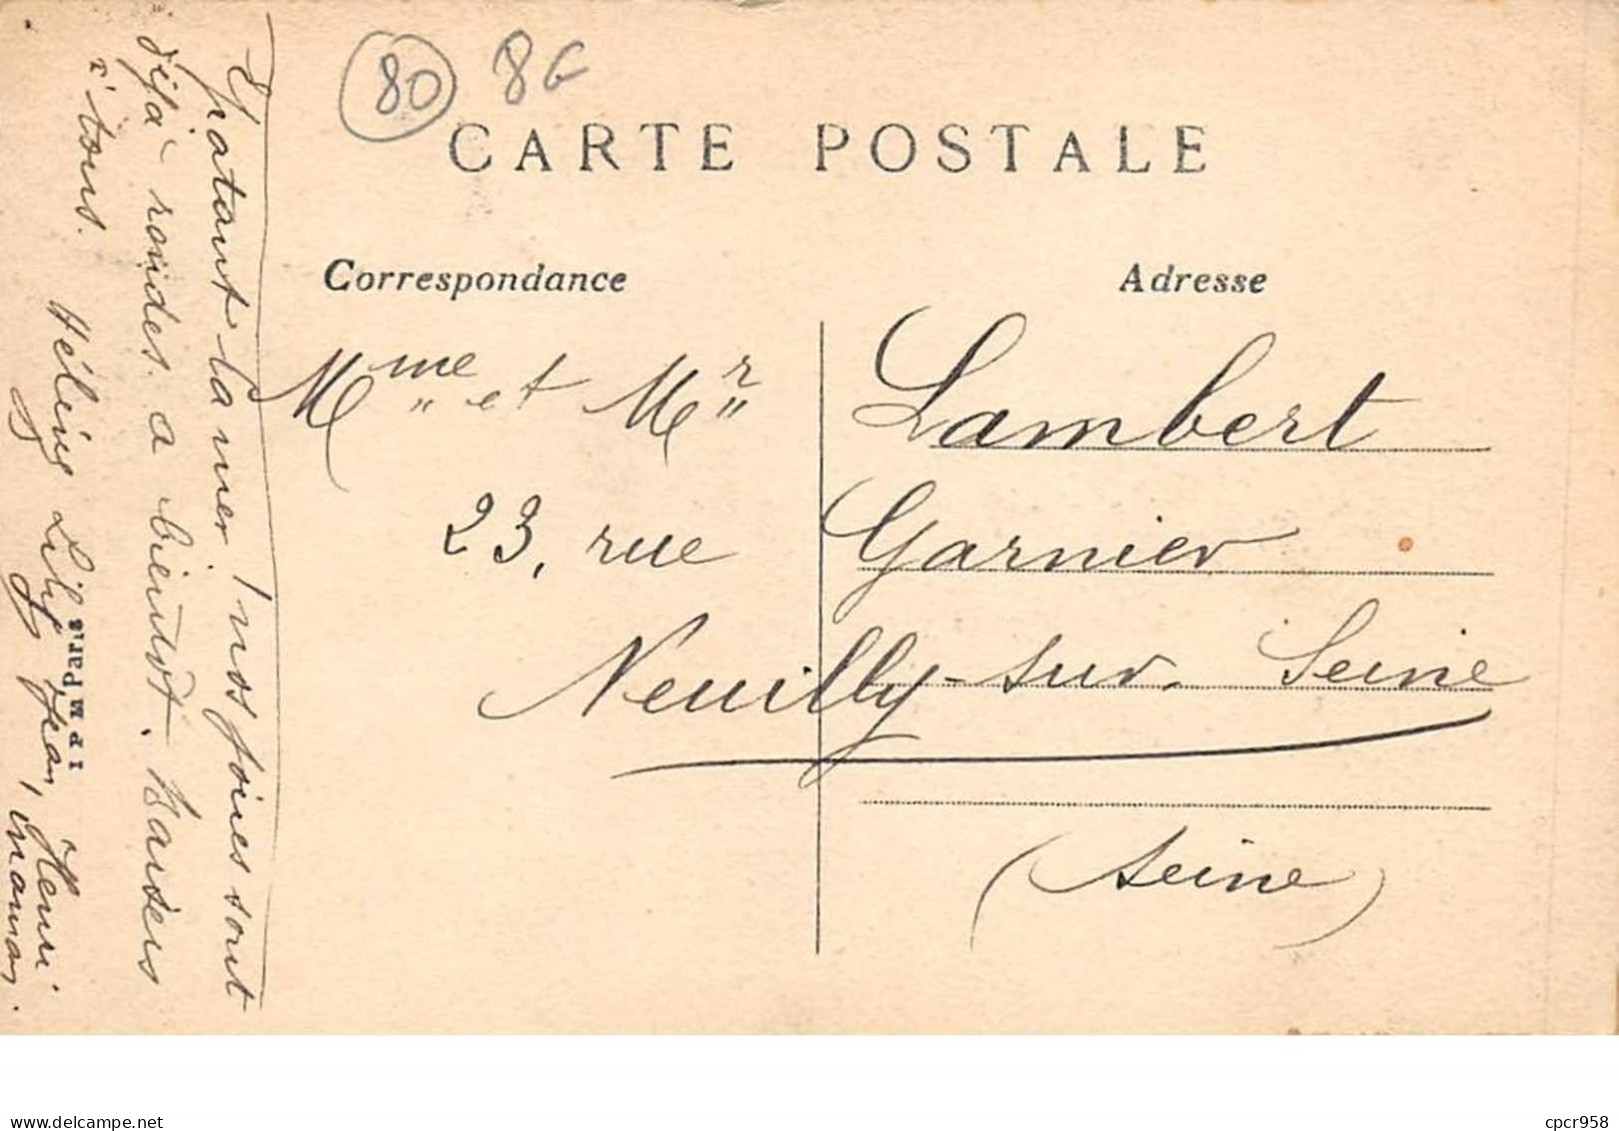 80 8€
CARTE POSTALE
Correspondance
Adresse
Mme et Mr Lambert
23, rue Garnier
Neuilly-sur-Seine
(Seine)
Epatant la mer! nos joues sont
déjà rondes. a bientôt. Baisers
à tous. Hélène Lily Jean, Henri
maman.
I P M Paris
delcampe.net
cpcr958